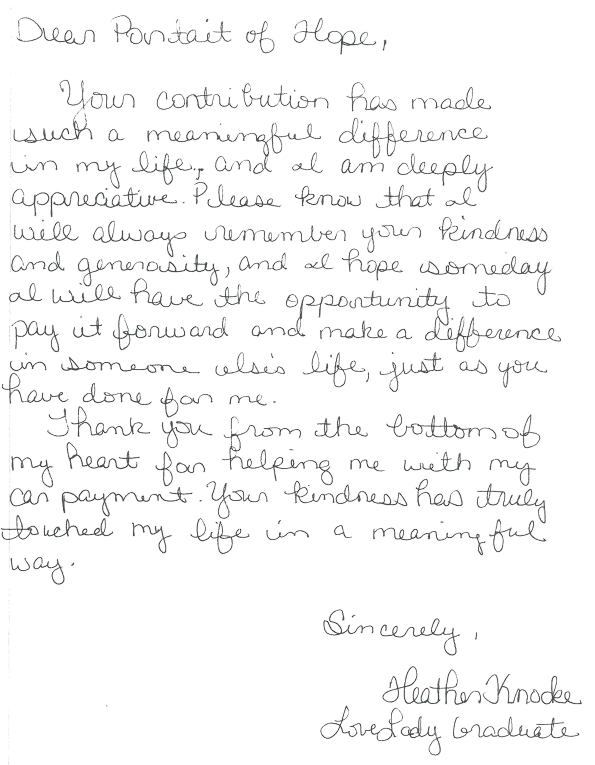 Dear Portait of Hope,
Your contribution has made
such a meaningful difference
in my life, and I am deeply
appreciative. Please know that I
will always remember your kindness
and generosity, and I hope someday
I will have the opportunity to
pay it forward and make a difference
in someone else's life, just as you
have done for me.
Thank you from the bottom of
my heart for helping me with my
car payment. Your kindness has truly
touched my life in a meaningful
way.
Sincerely,
Heather Knocke
LoveLady Graduate